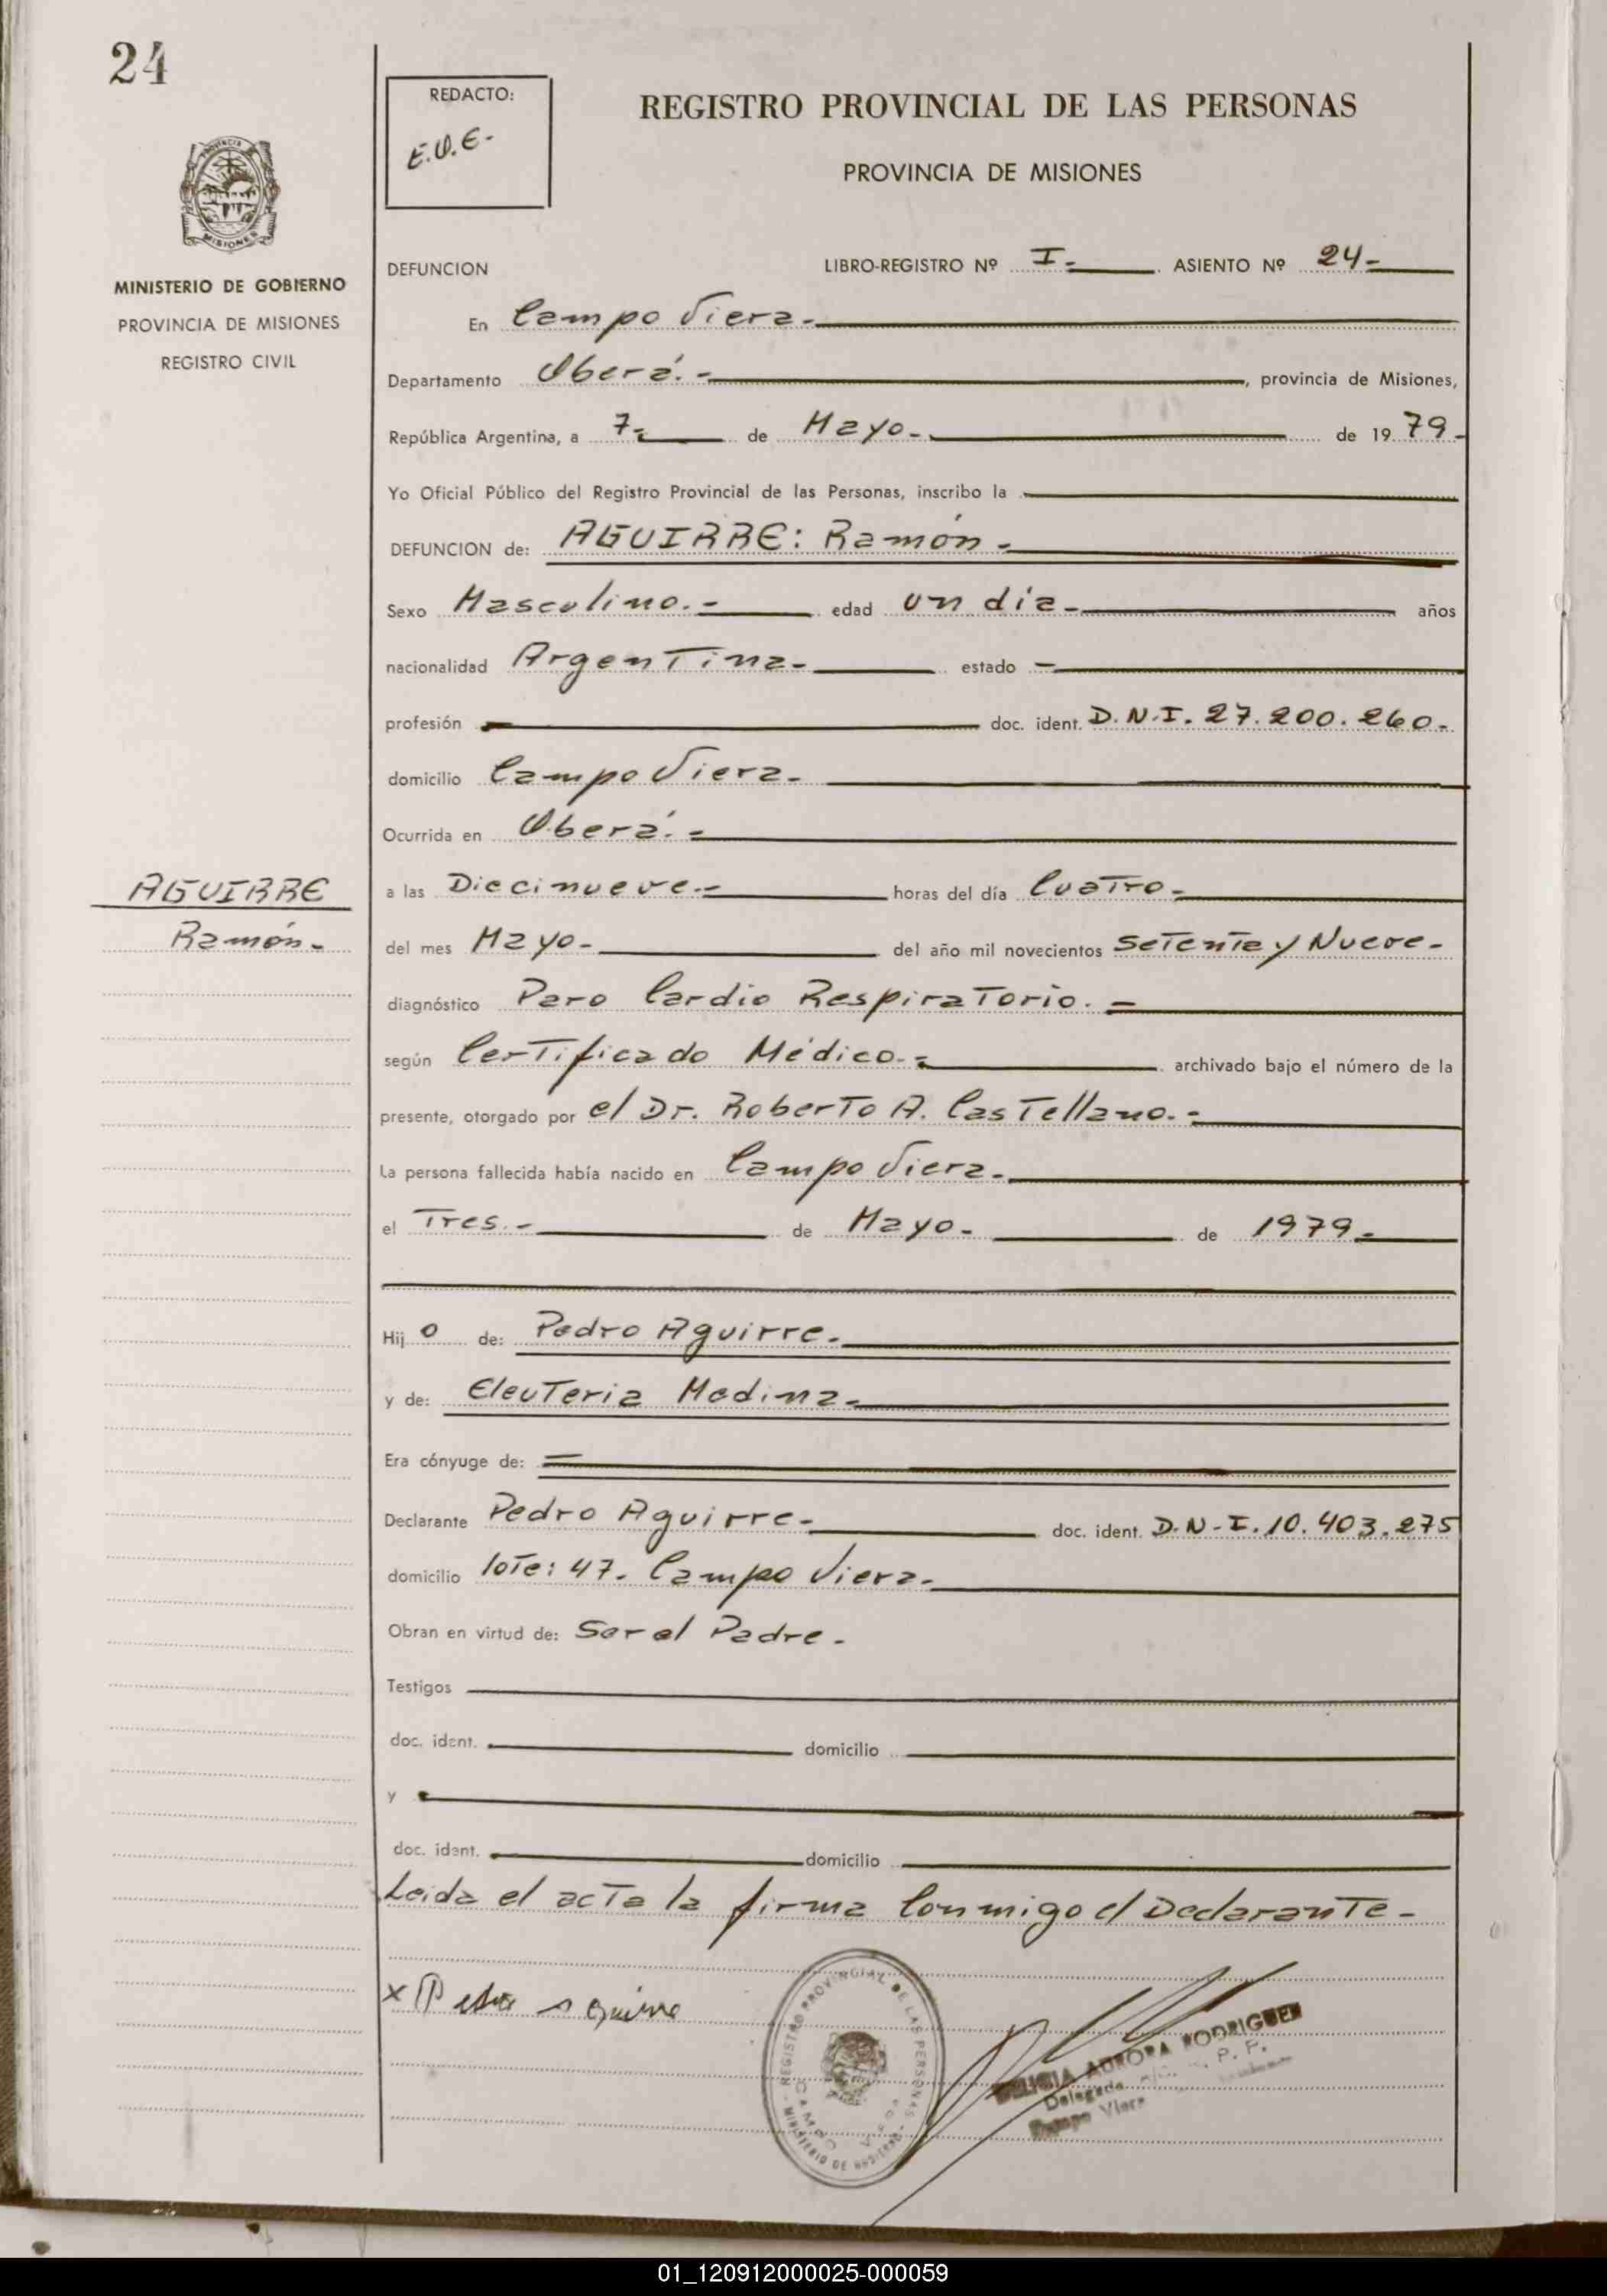 24
REDACTO:
REGISTRO PROVINCIAL DE LAS PERSONAS
PROVINCIA DE MISIONES
MISIONES
MINISTERIO DE GOBIERNO
PROVINCIA DE MISIONES
REGISTRO CIVIL
DEFUNCION LIBRO-REGISTRO Nº I.- ASIENTO Nº 24-
En Campo Viera.-
Departamento Oberá.-, provincia de Misiones,
República Argentina, a 7- de Mayo.- de 1979.-
Yo Oficial Público del Registro Provincial de las Personas, inscribo la
DEFUNCION de: AGUIRRE: Ramón.-
Sexo Masculino.- edad un día- años
nacionalidad Argentina- estado -
profesión doc. ident. D.N.I. 27.200.260.-
domicilio Campo Viera-
Ocurrida en Oberá.-
AGUIRRE
Ramón-
a las Diecinueve.- horas del día Cuatro-
del mes Mayo- del año mil novecientos Setenta y Nueve-
diagnóstico Paro Cardio Respiratorio.-
según Certificado Médico.- archivado bajo el número de la
presente, otorgado por el Dr. Roberto A. Castellano.-
La persona fallecida había nacido en Campo Viera-
el Tres.- de Mayo- de 1979-
Hijo de: Pedro Aguirre-
y de: Eleuteria Medina-
Era cónyuge de: =
Declarante Pedro Aguirre- doc. ident. D.N.I. 10.403.275
domicilio lote: 47. Campo Viera-
Obran en virtud de: Ser el Padre-
Testigos
doc. ident. domicilio
y
doc. ident. domicilio
Leida el acta la firma Conmigo el Declarante-
REGISTRO PROVINCIAL DE LAS PERSONAS
MINISTERIO DE GOBIERNO
AURORA RODRIGUEZ
Delegada
Campo Viera
01_120912000025-000059